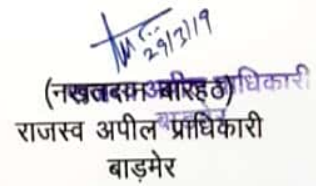 29/3/19
(नखतदान बारहठ)
राजस्व अपील प्राधिकारी
बाड़मेर